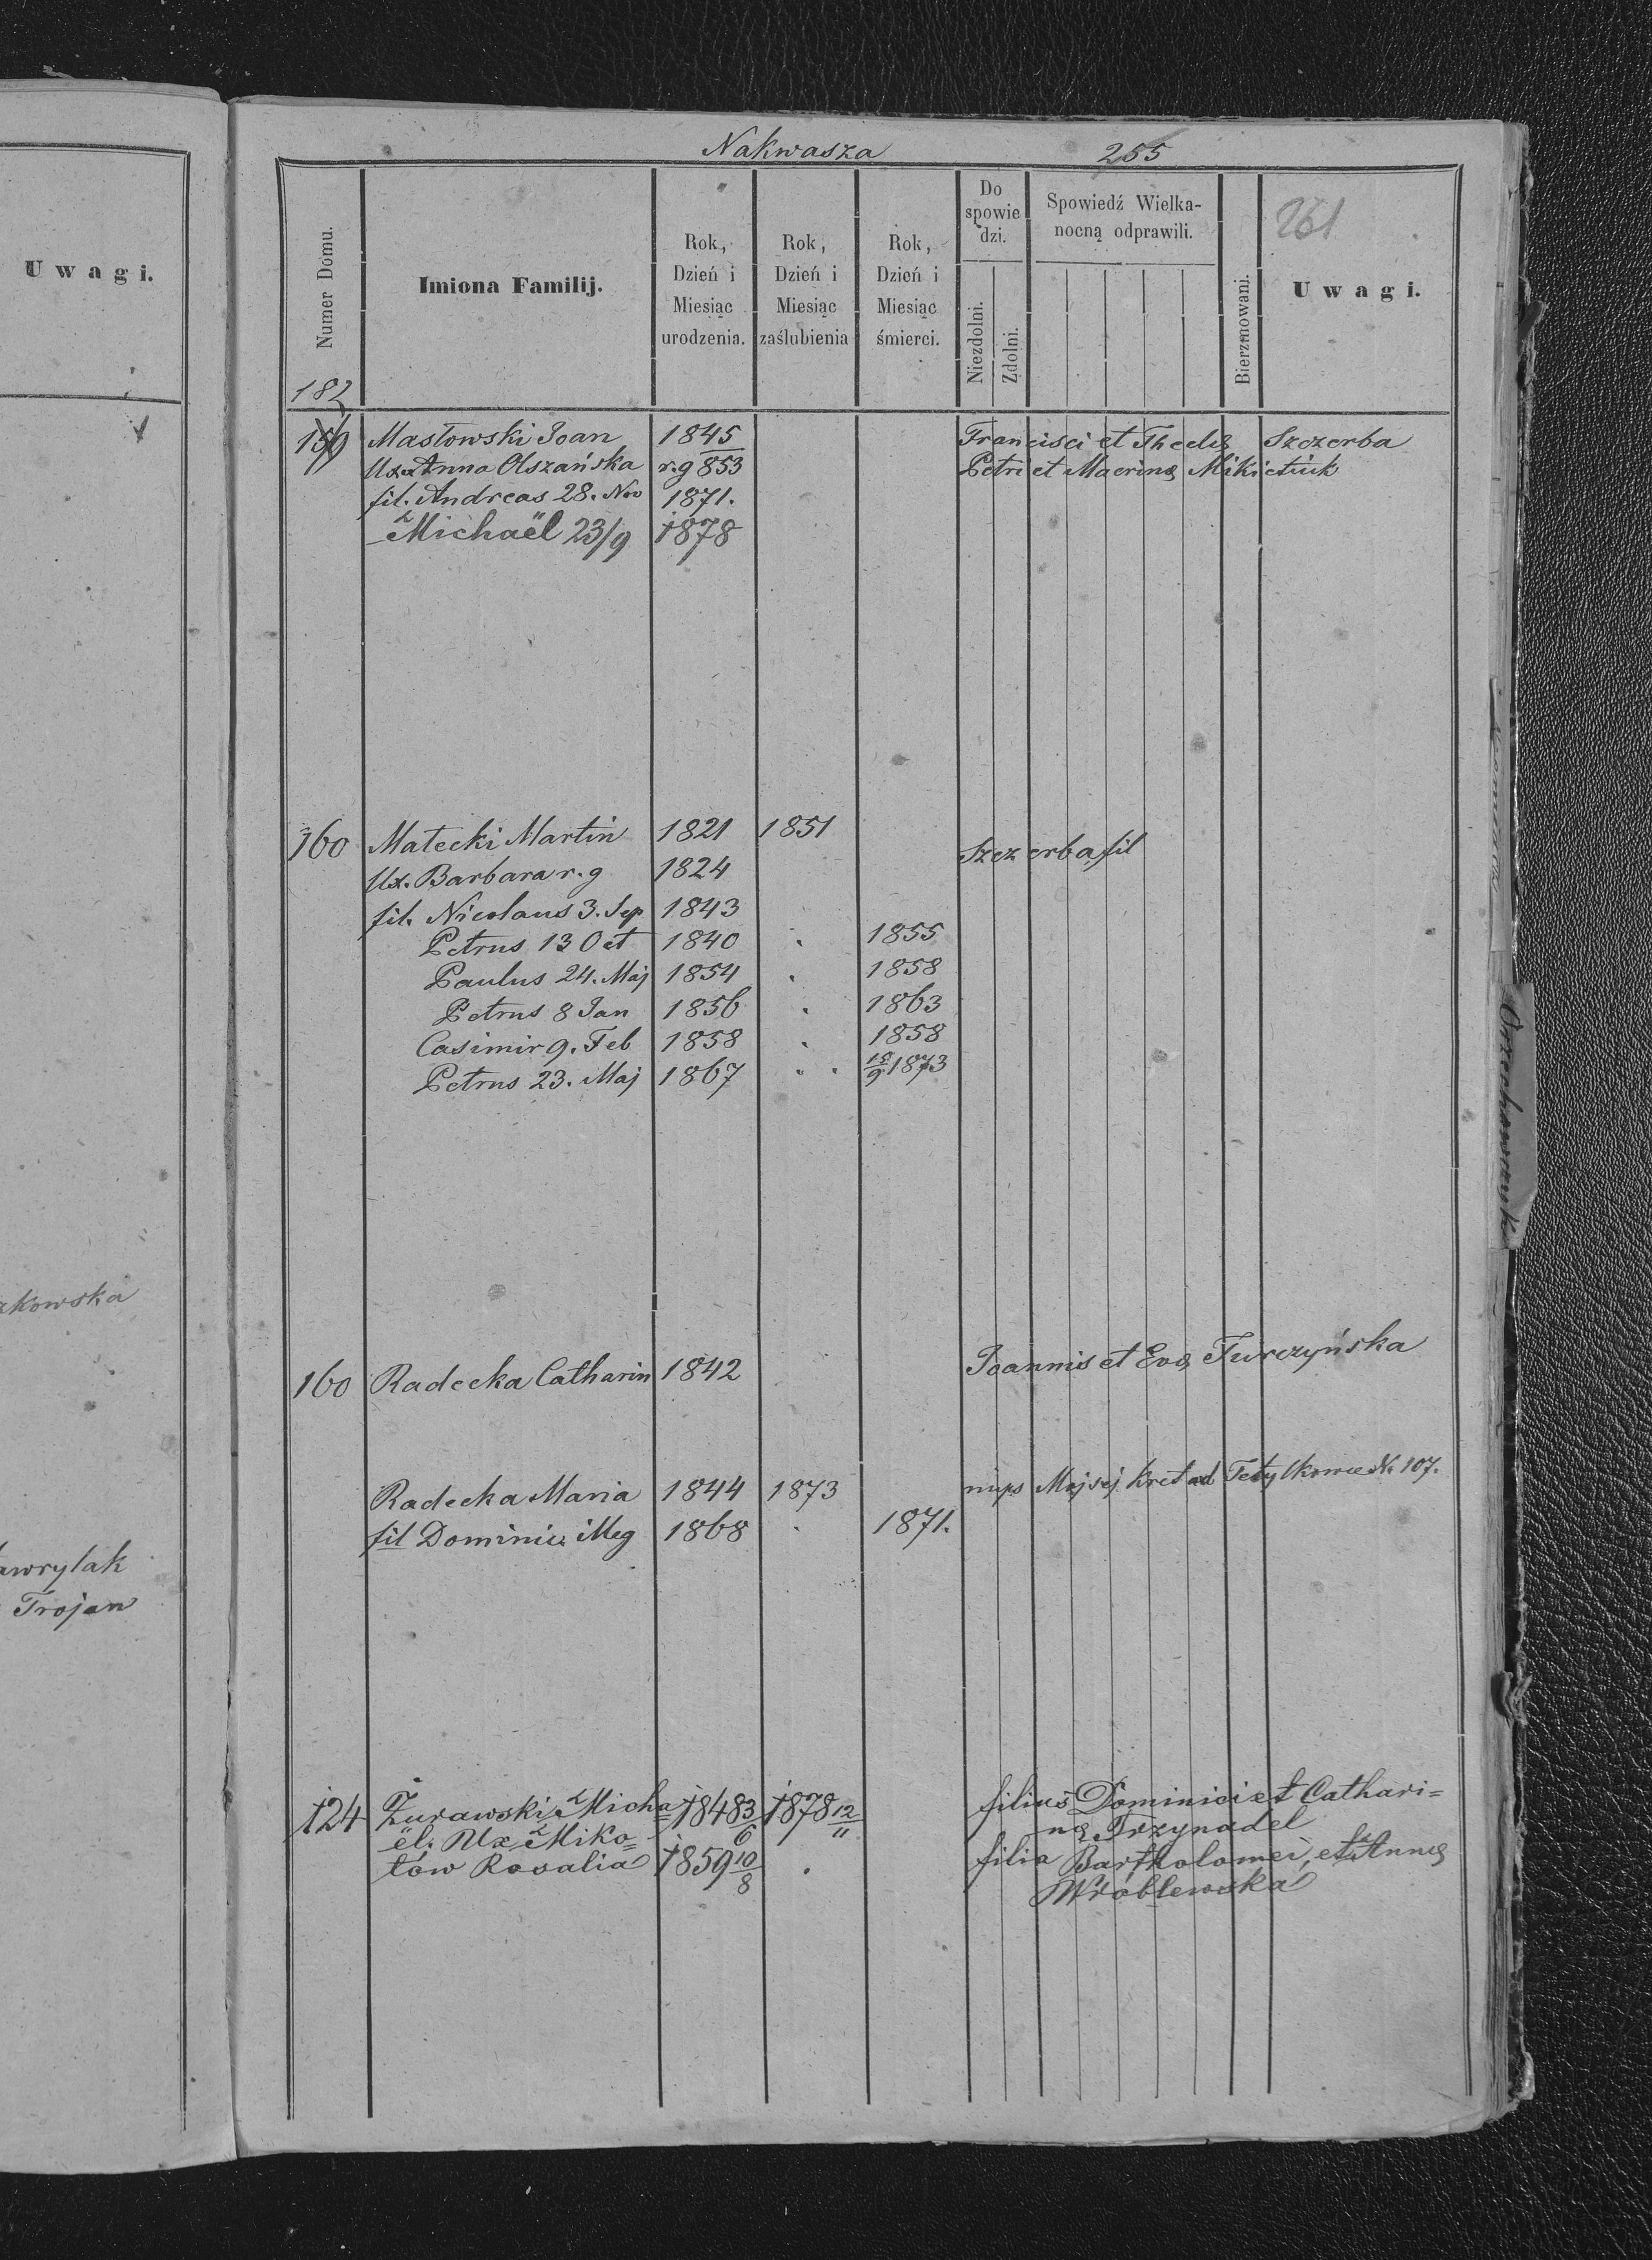 Uwagi.
zkowska
awrylak
Trojan
Nakwasza 255
Numer Domu.
Imiona Familij.
Rok, Dzień i Miesiąc urodzenia.
Rok, Dzień i Miesiąc zaślubienia
Rok, Dzień i Miesiąc śmierci.
Do spowiedzi.
Niezdolni.
Zdolni.
Spowiedź Wielkanocną odprawili.
Bierzmowani.
261
Uwagi.
182
159 Masłowski Joan 1845 Francisci et Theclę Szczerba
Ux. Anna Olszańska r.g 853 Petri et Macrinę Mikietiuk
fil. Andreas 28. Nov 1871.
Michaël 23/9 1878
160 Małecki Martin 1821 1851
Ux. Barbara r. g 1824 Szczerba fil
fil. Nicolaus 3. Sep 1843
Petrus 13 Oct 1840 . 1855
Paulus 24. Maj 1854 . 1858
Petrus 8 Jan 1856 . 1863
Casimir 9. Feb 1858 . 1858
Petrus 23. Maj 1867 . . 15/9 1873
160 Radecka Catharin 1842 Joannis et Evę Turczyńska
Radecka Maria 1844 1873 nups Mojsej Kret ad Tetylkowce N. 107.
fil Dominic illeg 1868 . 1871.
124 Żurawski Micha= 1848 3/6 1878 12/11 filius Dominici et Cathari=
ël. Ux Miko= nę Trzynadel
łów Rosalia 1859 10/8 . filia Bartholomei, et Annę
Wróblewska
Orzechowczyk